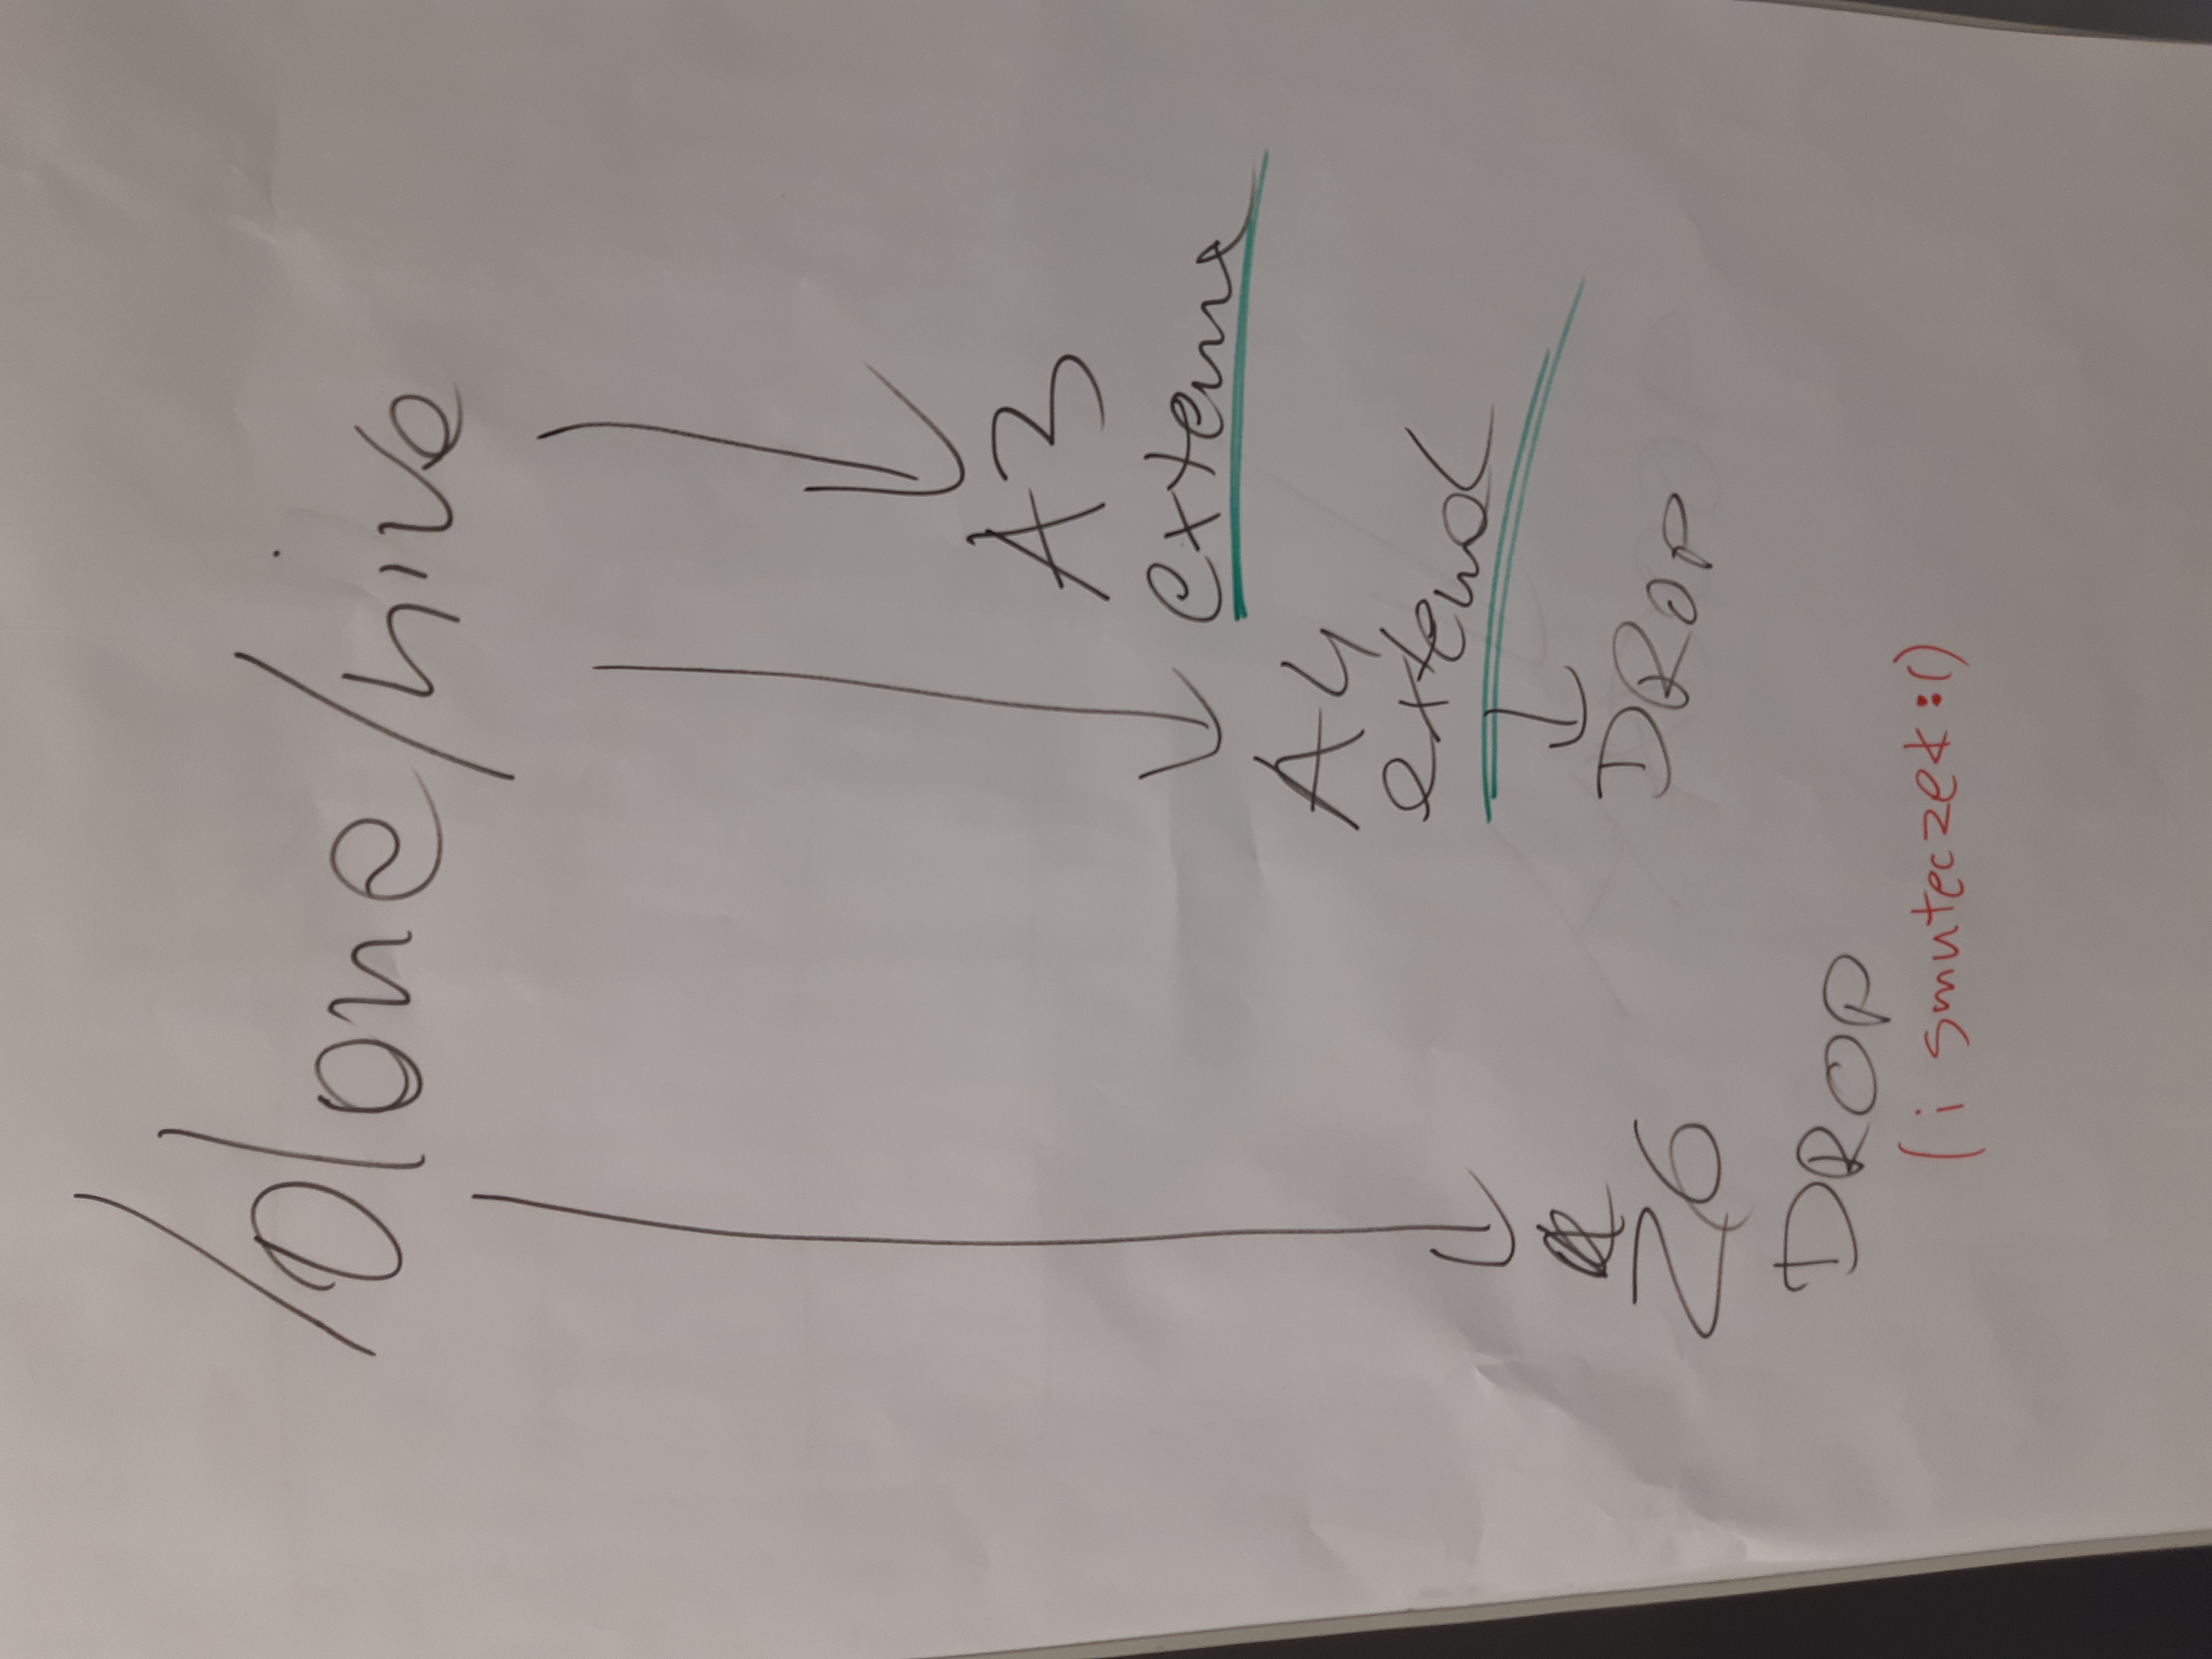 /done/hive
A3
externe
A4
extend
DROP
Z6
DROP
(i smuteczek :()